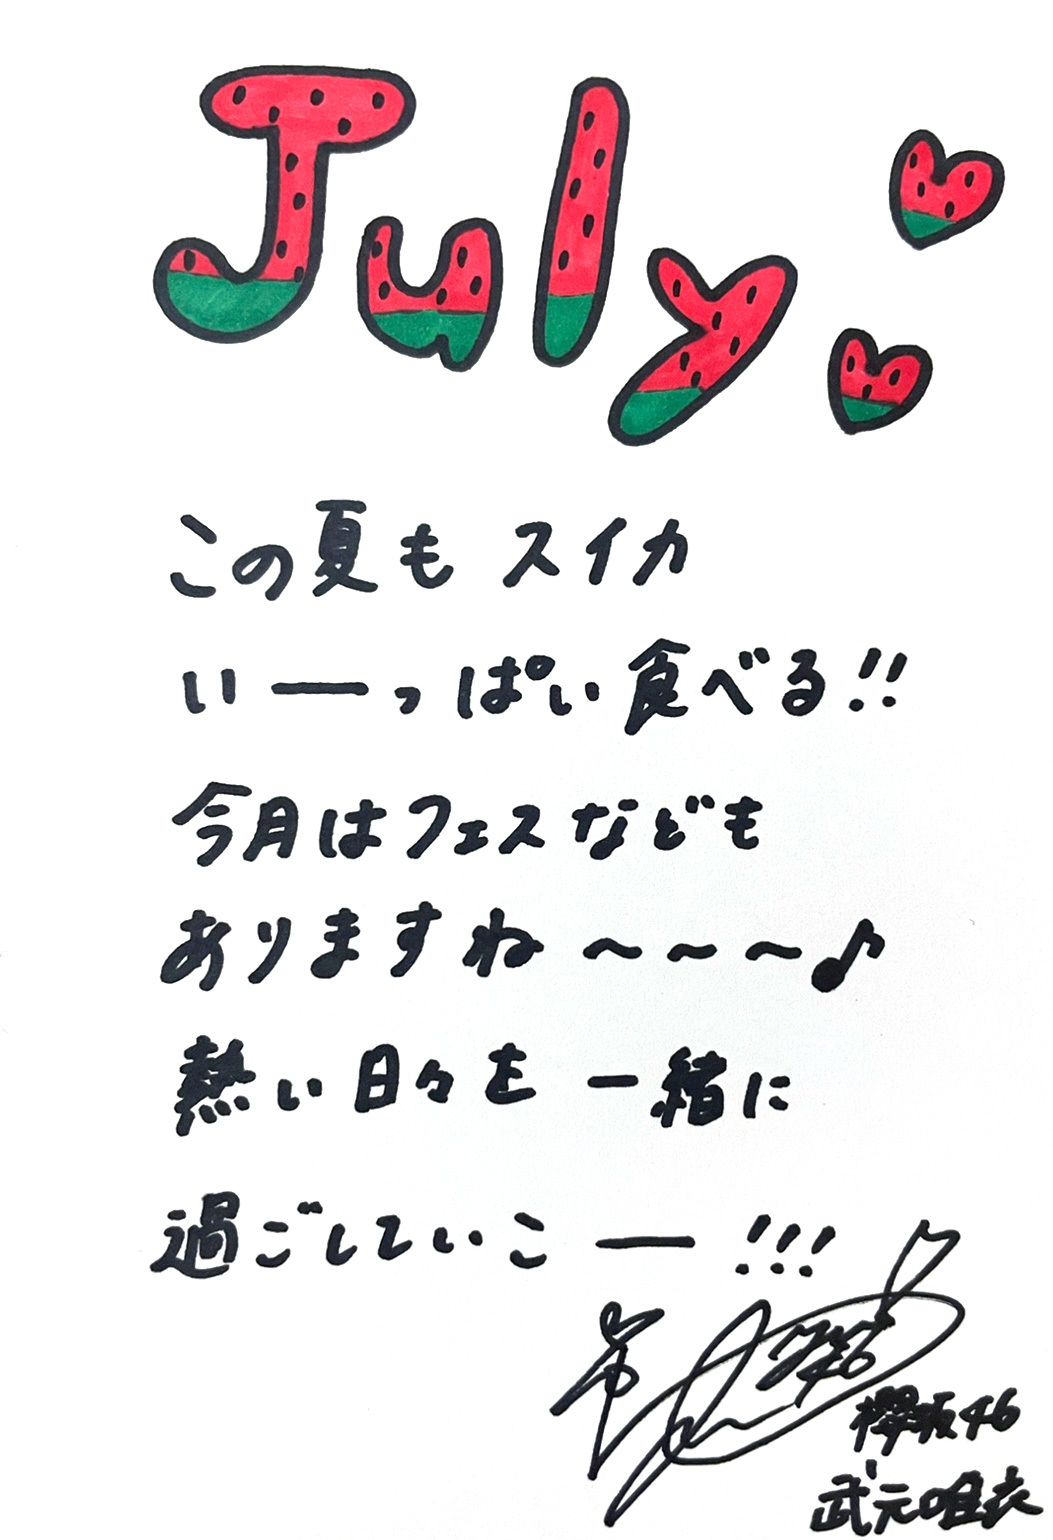 July
この夏も スイカ
いーっぱい食べる!!
今月はフェスなども
ありますね〜〜〜♪
熱い日々を 一緒に
過ごしていこー!!!
櫻坂46
武元唯衣